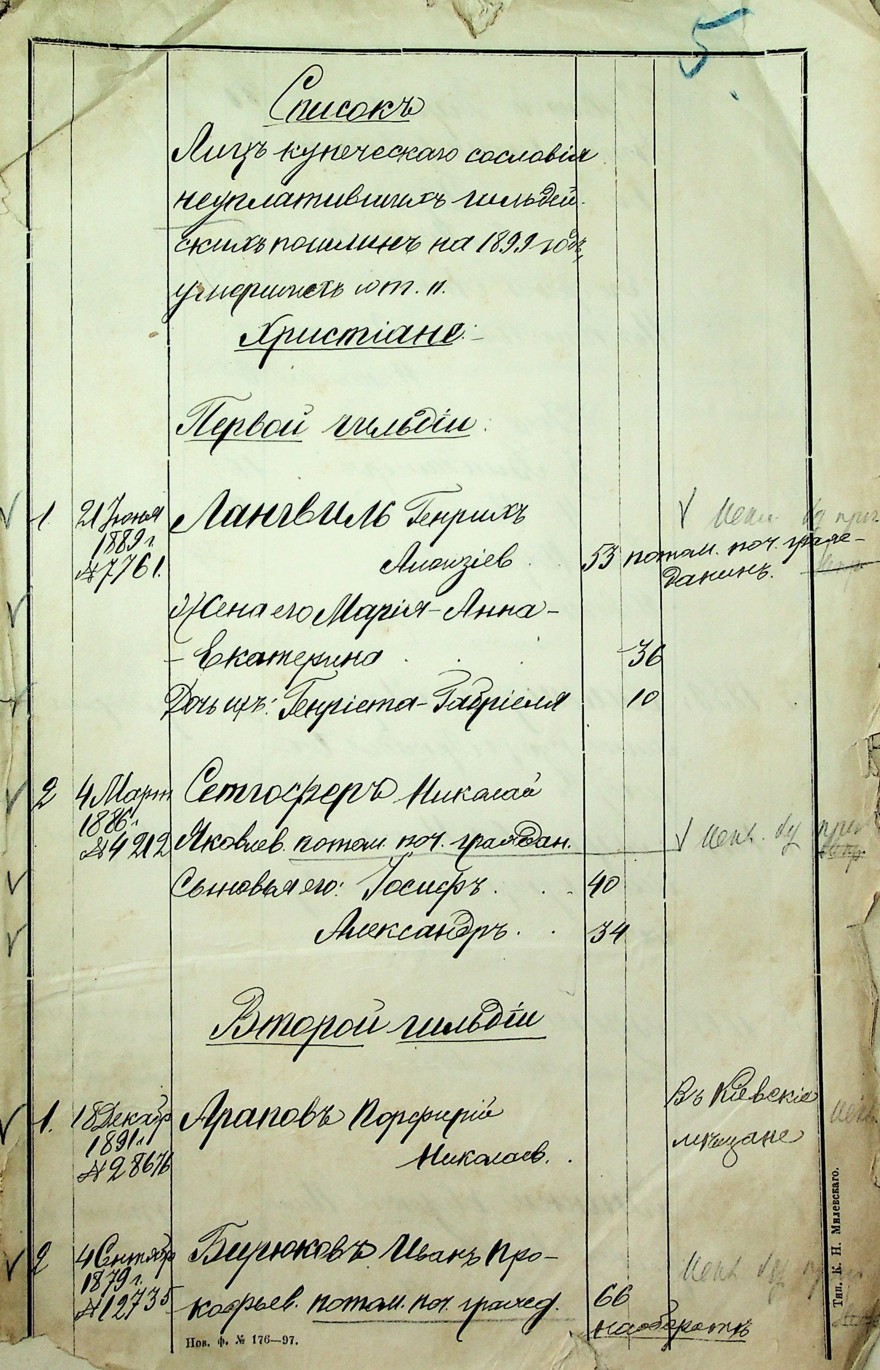 5
Списокъ
Лицъ купеческаго сословія
неуплатившихъ гильдей-
скихъ пошлинъ на 1899 годъ,
умершихъ и т. п.
Христіане:
Первой гильдіи:
1 21 Іюня Лангвиль Генрихъ
1889 г. Алоизіев. 53 потом. поч. граж-
№ 7761. данинъ.
Жена его Марія-Анна-
-Екатерина 36
Дочь ихъ: Генріета-Габріеля 10
2 4 Март Сетгоферъ Николай
1886 г. Яковлев. потом. поч. граждан.
№ 4212
Сыновья его: Іосифъ. 40
Александръ. 34
Второй гильдіи
1. 18 Декабр Араповъ Порфирій Въ Кіевскіе
1891 г. Николаев. мѣщане
№ 28676
2 4 Сентябр Бирюковъ Иванъ Про-
1879 г. кофьев. потом. поч. гражд. 66
№ 12735 наоборотъ
Нов. ф. № 176—97.
Тип. К. Н. Милевскаго.